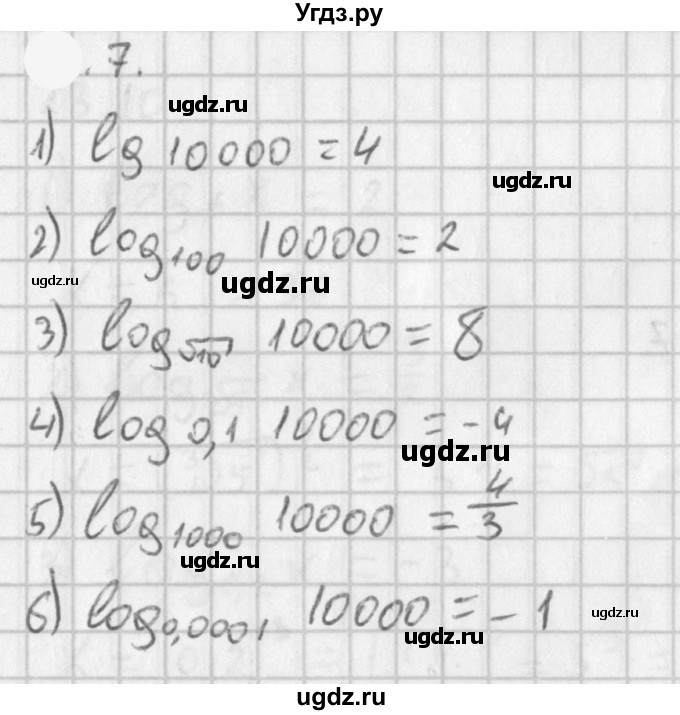 Угдз.ру
.7.
ugdz.ru
1) lg 10000 = 4
ugdz.ru
2) log₁₀₀ 10000 = 2
ugdz.ru ugdz.ru
3) log_√10 10000 = 8
4) log 0,1 10000 = -4
ugdz.ru
5) log₁₀₀₀ 10000 = 4/3
ugdz.ru
6) log₀,₀₀₀₁ 10000 = -1
ugdz.ru ugdz.ru
ugdz.ru